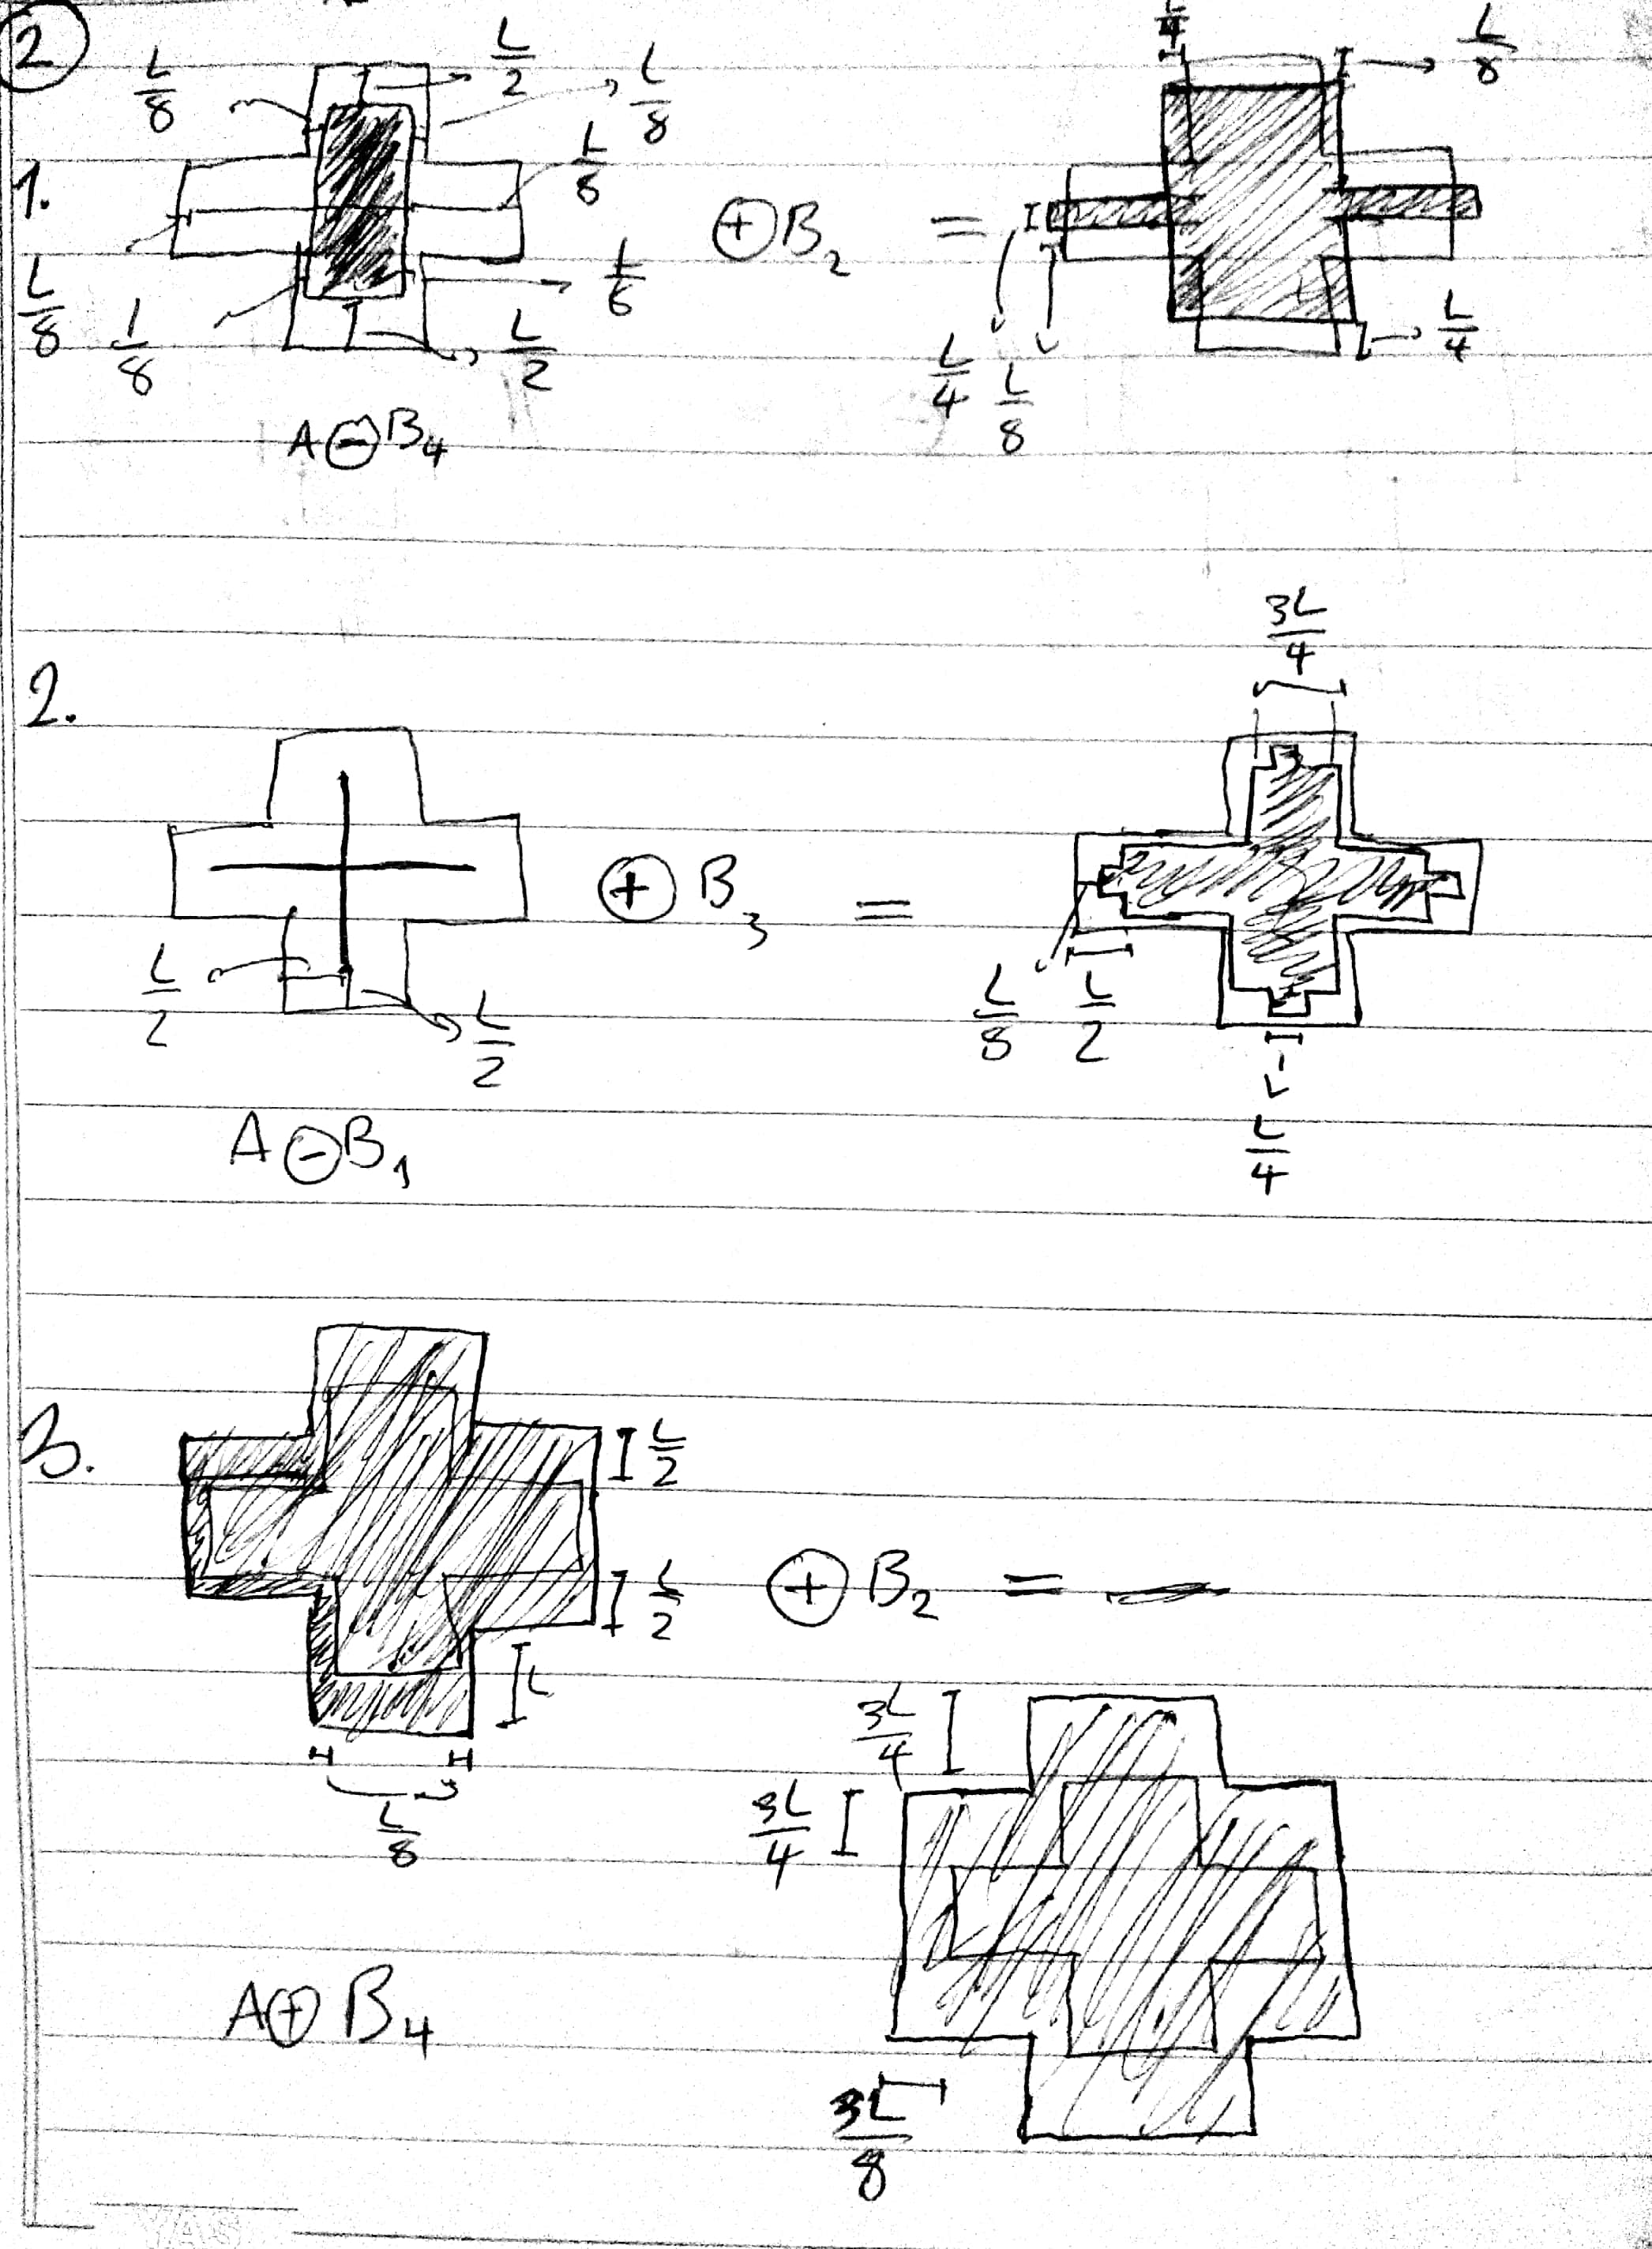 2
L/8
L/2
L/8
L/8
1.
L/8
L/8
L/6
L/2
A ⊖ B4
⊕ B2 =
L/4
L/8
L/4
L/8
L/4
2.
L/2
L/2
A ⊖ B1
⊕ B3 =
3L/4
L/8
L/2
L/4
3.
L/2
L/2
L
L/8
A ⊕ B4
⊕ B2 =
3L/4
3L/4
3L/8